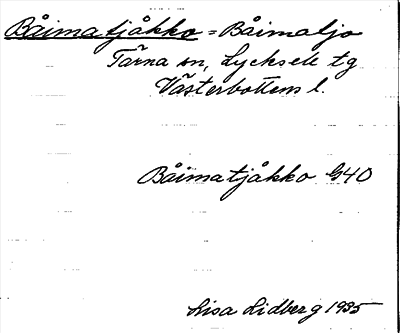 Båimatjåkko = Båimaljo
Tärna sn, Lycksele tg
Västerbottens l.
Båimatjåkko G40
Lisa Lidberg 1935